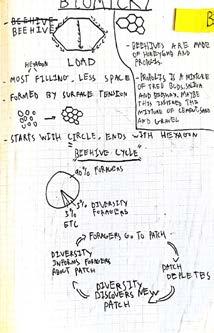 BIOMICRY
BEEHIVE
BEEHIVE
HEXAGON
LOAD
- MOST FILLING, LESS SPACE
- FORMED BY SURFACE TENSION
- STARTS WITH CIRCLE, ENDS WITH HEXAGON
- BEEHIVES ARE MADE
OF HONEYCOMB AND
PROPOLIS.
- PROPOLIS IS A MIXTURE
OF TREE BUDS, SALIVA
AND BEESWAX. MAYBE
THIS INSPIRED THE
MIXTURE OF CEMENT, SAND
AND GRAVEL
"BEEHIVE CYCLE"
90% FORAGERS
5% DIVERSITY
FORAGERS
5%
ETC
FORAGERS GO TO PATCH
PATCH
DEPLETES
DIVERSITY
DISCOVERS NEW
PATCH
DIVERSITY
INFORMS FORAGERS
ABOUT PATCH